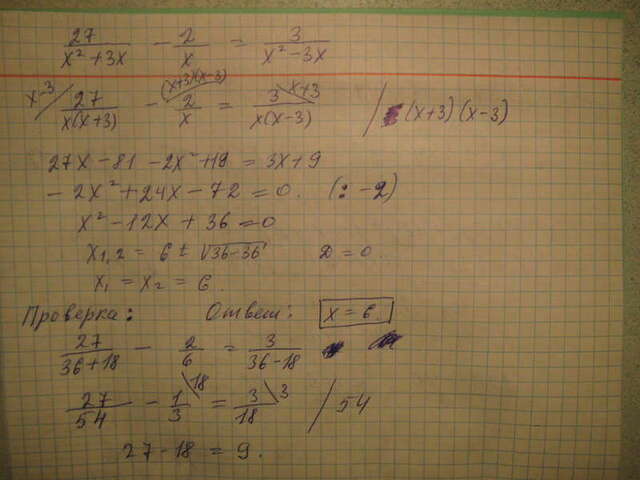 27/(x² + 3x) - 2/x = 3/(x² - 3x)
x-3/ 27/(x(x+3)) - (x+3)(x-3)/ 2/x = 3/(x(x-3)) \x+3 / (x+3)(x-3)
27x - 81 - 2x² + 18 = 3x + 9
- 2x² + 24x - 72 = 0. (: -2)
x² - 12x + 36 = 0
x₁,₂ = 6 ± √36-36 D = 0.
x₁ = x₂ = 6.
Проверка: Ответ: x = 6.
27/(36+18) - 2/6 = 3/(36-18)
27/54 - 1/3 \18 = 3/18 \3 / 54
27 - 18 = 9.